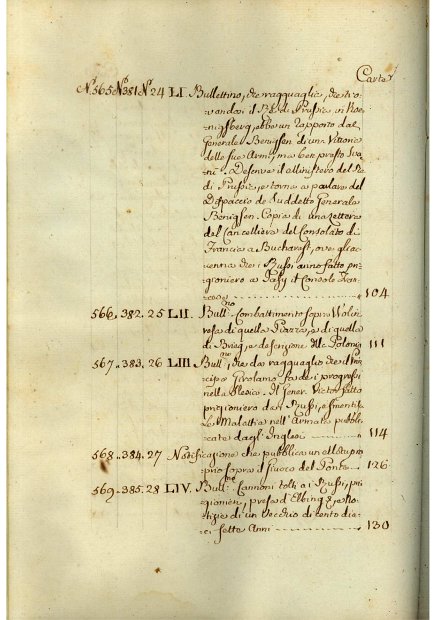 Carte
N.º 565 N.º 381 N.º 24 LI. Bullettino, che ragguaglia, che tro-
vandosi il Re di Prussia in Koe-
nigsberg, ebbe un rapporto dal
Generale Benigsen di una Vittoria
delle sue Armi, ma ben presto sva-
nì. Descrive il Ministero del Re
di Prussia, e torna a parlare del
Dispaccio del Suddetto Generale
Benigsen. Copia di una Lettera
del Cancelliere del Consolato di
Francia a Bucharest, ove gli ac-
cenna che i Russi anno fatto pri-
gioniero a Jassy il Console Fran-
cese 104
566. 382. 25 LII. Bull.no Combattimento sopra Wolin
resa di quella Piazza, e di quella
di Brieg, e descrizione della Polonia 111
567. 383. 26 LIII. Bull.no che da ragguaglio che il Prin-
cipe Girolamo fa dei progressi
nella Slesia. Il Gener. Victor fatto
prigioniero dai Russi, e smentite
le Malattie nell'Armata pubbli-
cate dagl'Inglesi 114
568. 384. 27 Notificazione che pubblica un
sopra il Giuoco del Ponte 126
569. 385. 28 LIV. Bull.no Cannoni tolti ai Russi, pri-
gionieri, presa d'Elbing, e No-
tizie di un Vecchio di cento die-
ci sette Anni 130